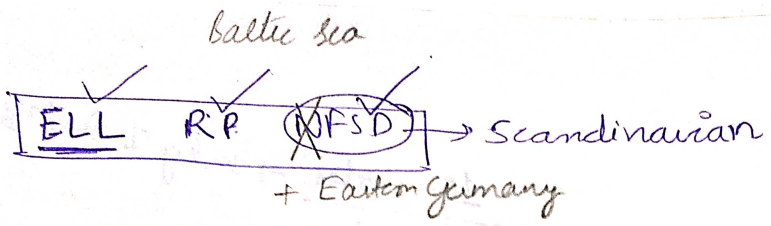 Baltic Sea
ELL RP NFSD → Scandinavian
+ Eastern Germany